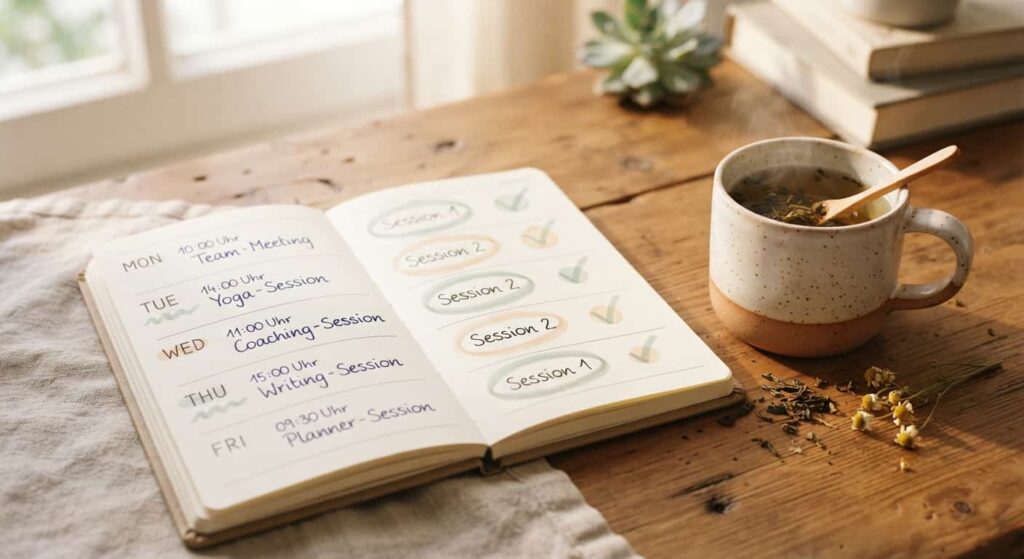 MON 10:00 Uhr
Team-Meeting
TUE 14:00 Uhr
Yoga-Session
WED 11:00 Uhr
Coaching-Session
THU 15:00 Uhr
Writing-Session
FRI 09:30 Uhr
Planner-Session
Session 1
Session 2
Session 2
Session 2
Session 1